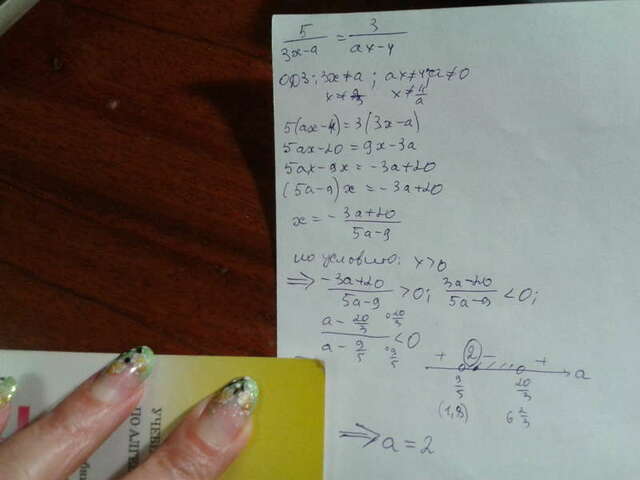 5/(3x-a) = 3/(ax-4)
ОДЗ: 3x≠a; ax≠4; a≠0
x≠a/3 x≠4/a
5(ax-4)=3(3x-a)
5ax-20=9x-3a
5ax-9x=-3a+20
(5a-9)x=-3a+20
x=(-3a+20)/(5a-9)
по условию: x>0
⇒ (-3a+20)/(5a-9) >0; (3a-20)/(5a-9) <0;
(a-20/3)/(a-9/5) <0 20/3 9/5
+ 2 - + a
9/5 20/3
(1,8) 6 2/3
⇒ a=2
УЧЕБН
ПО АЛГЕ